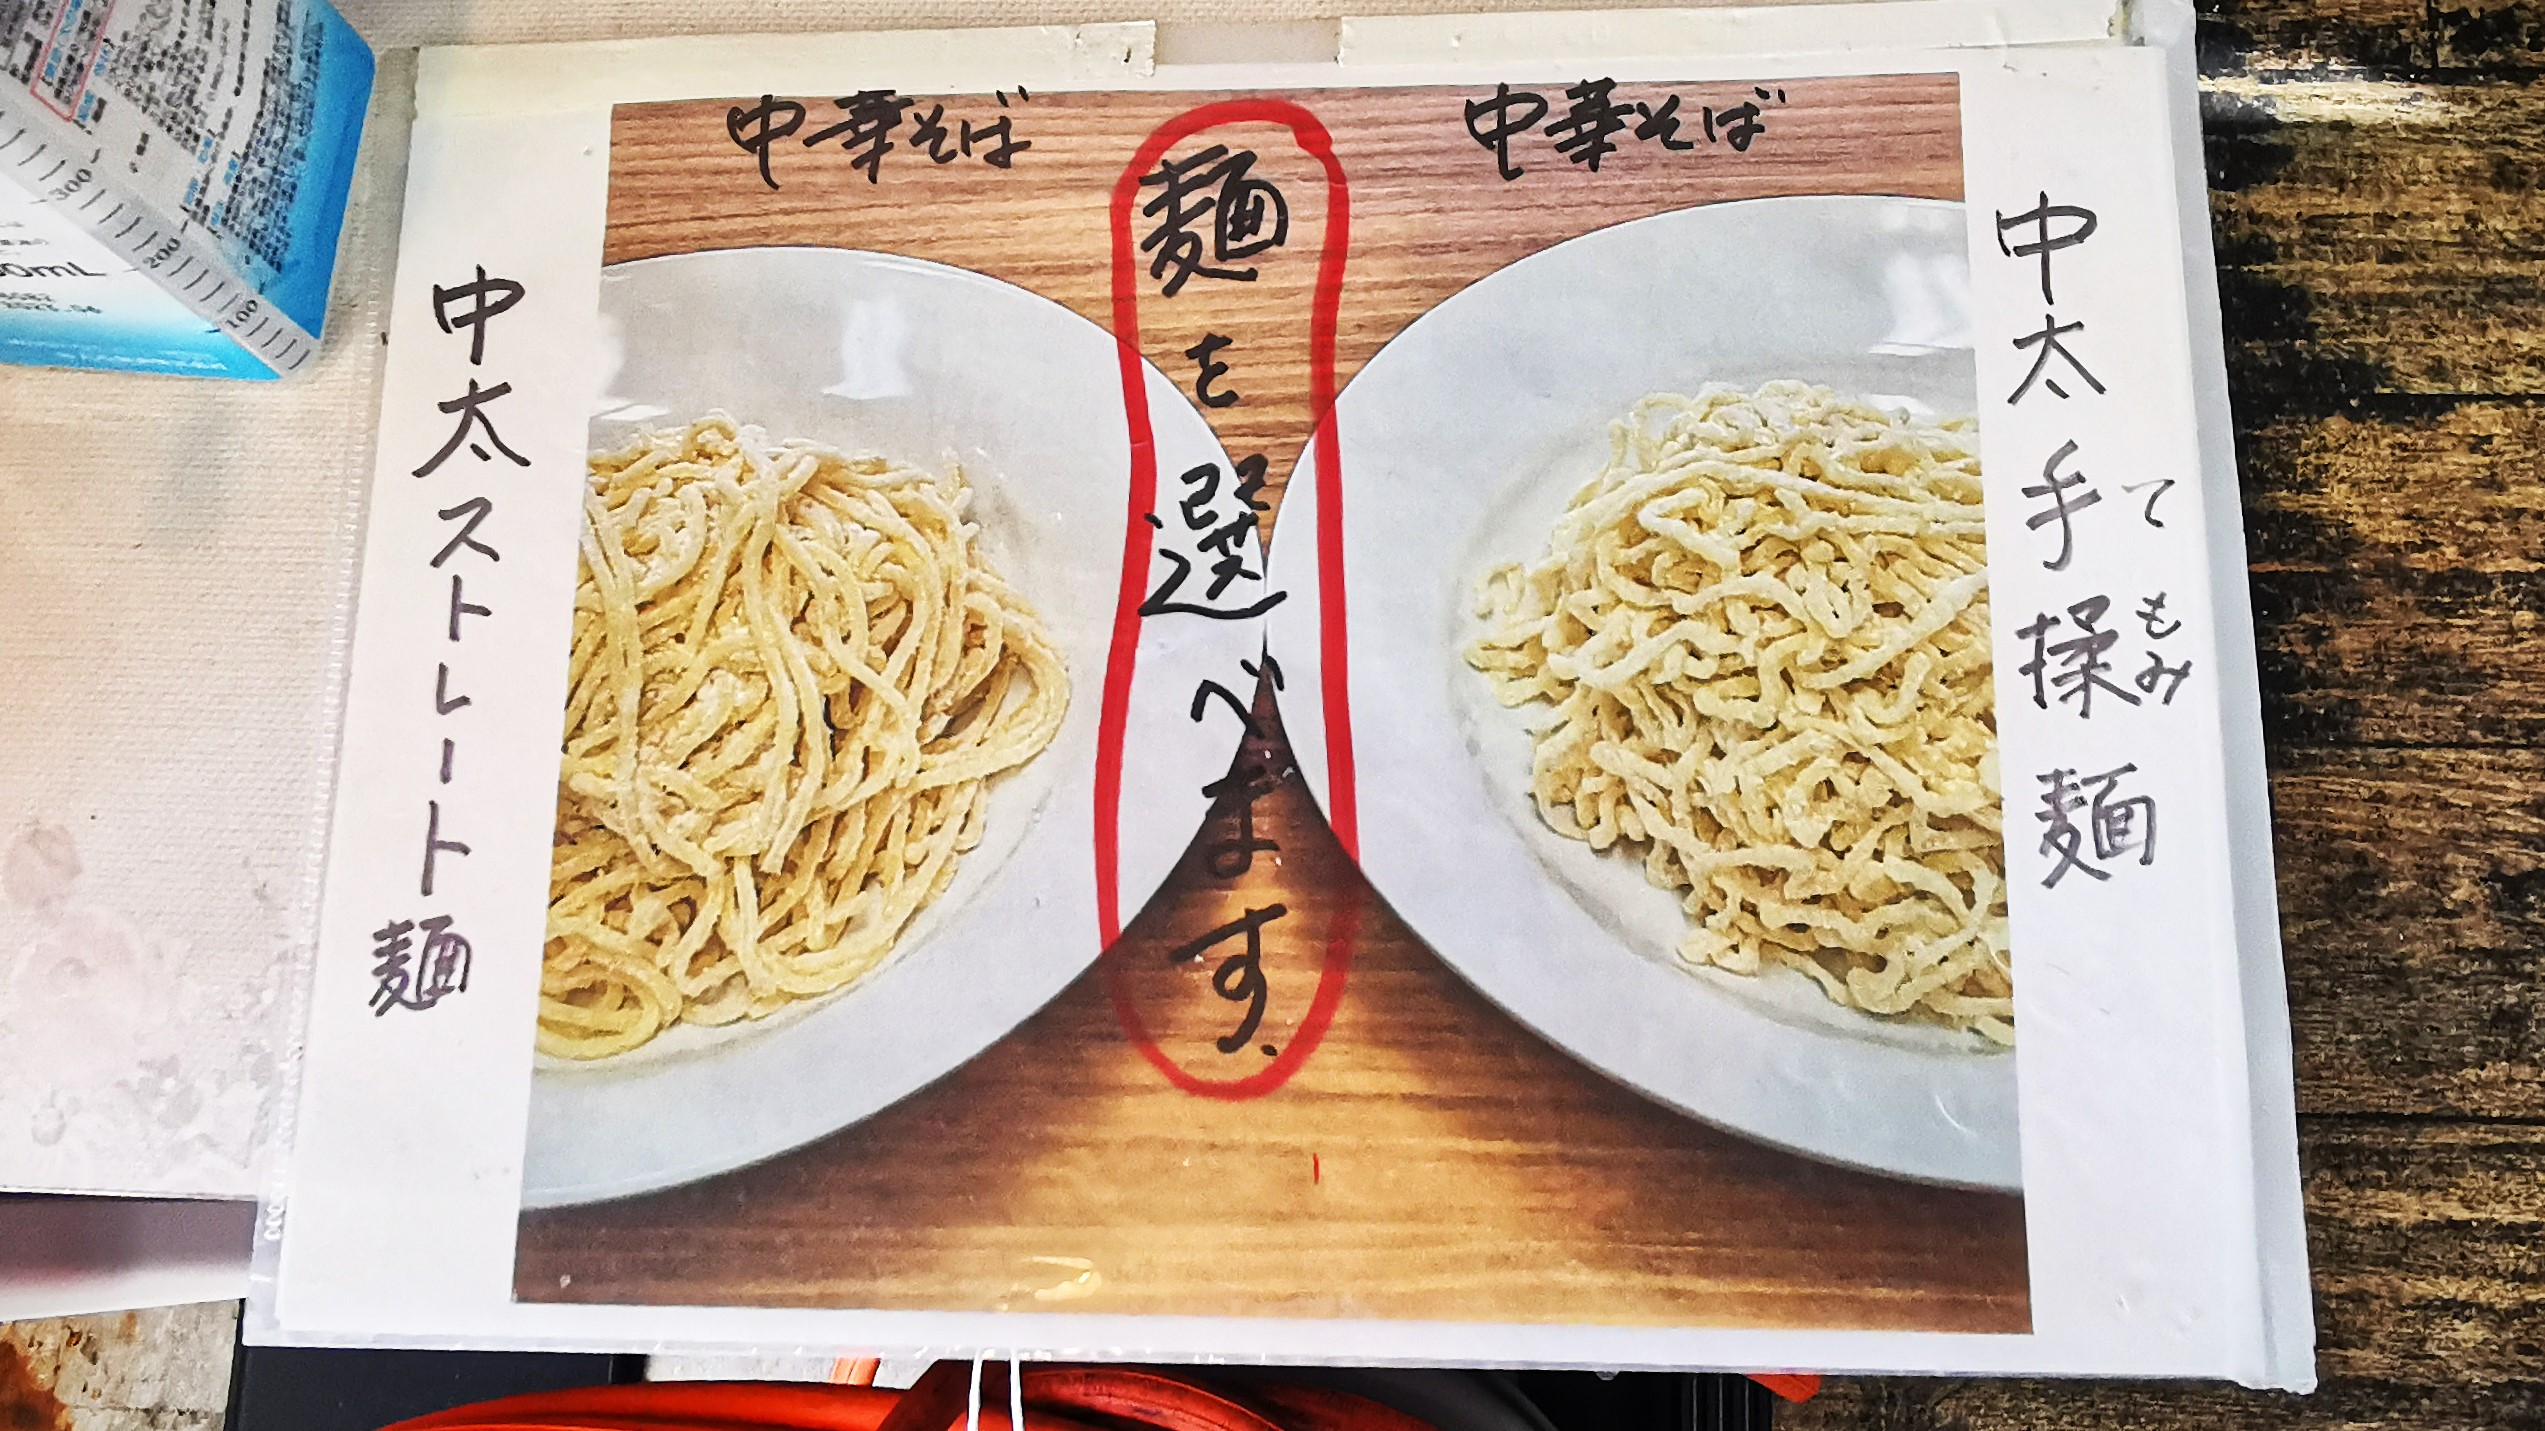 中華そば
中華そば
麺を選べます。
中太ストレート麺
中太手揉麺
てもみ
300
200
100
0mL